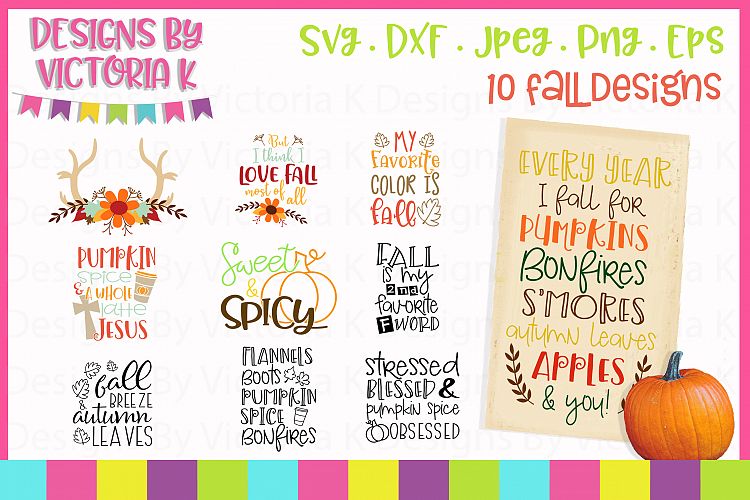 DESIGNS BY
VICTORIA K
Svg . DXF . Jpeg . Png . Eps
10 fall Designs
But
I think I
LOVE FALL
most of all
MY
FAVORITE
COLOR IS
fall
PUMPKIN
spice
& A WHOLE
latte
JESUS
Sweet
&
SPICY
FALL
is my
2nd
favorite
F WORD
fall
BREEZE
& autumn
LEAVES
FLANNELS
BOOTS
PUMPKIN
SPICE
BONFIRES
stressed
BLESSED &
pumpkin spice
OBSESSED
EVERY YEAR
I fall for
PUMPKINS
BONFIRES
S'MORES
autumn leaves
APPLES
& you!
Designs By Victoria K Designs By Victoria K